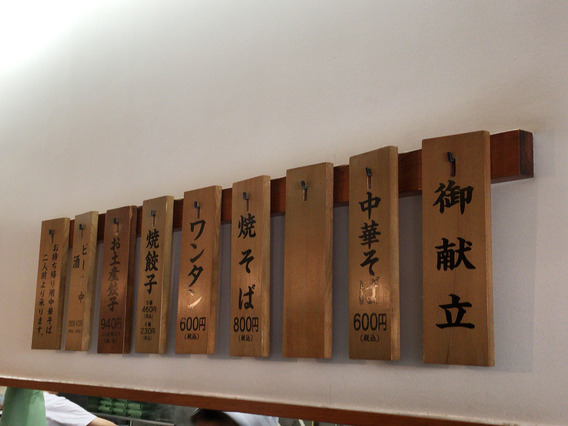 御献立
中華そば
600円
(税込)
焼そば
800円
(税込)
ワンタン
600円
(税込)
焼餃子
460円
(税込)
230円
(税込)
お土産餃子
940円
ビール 中
酒
お持ち帰り用中華そば
二人前より承ります。